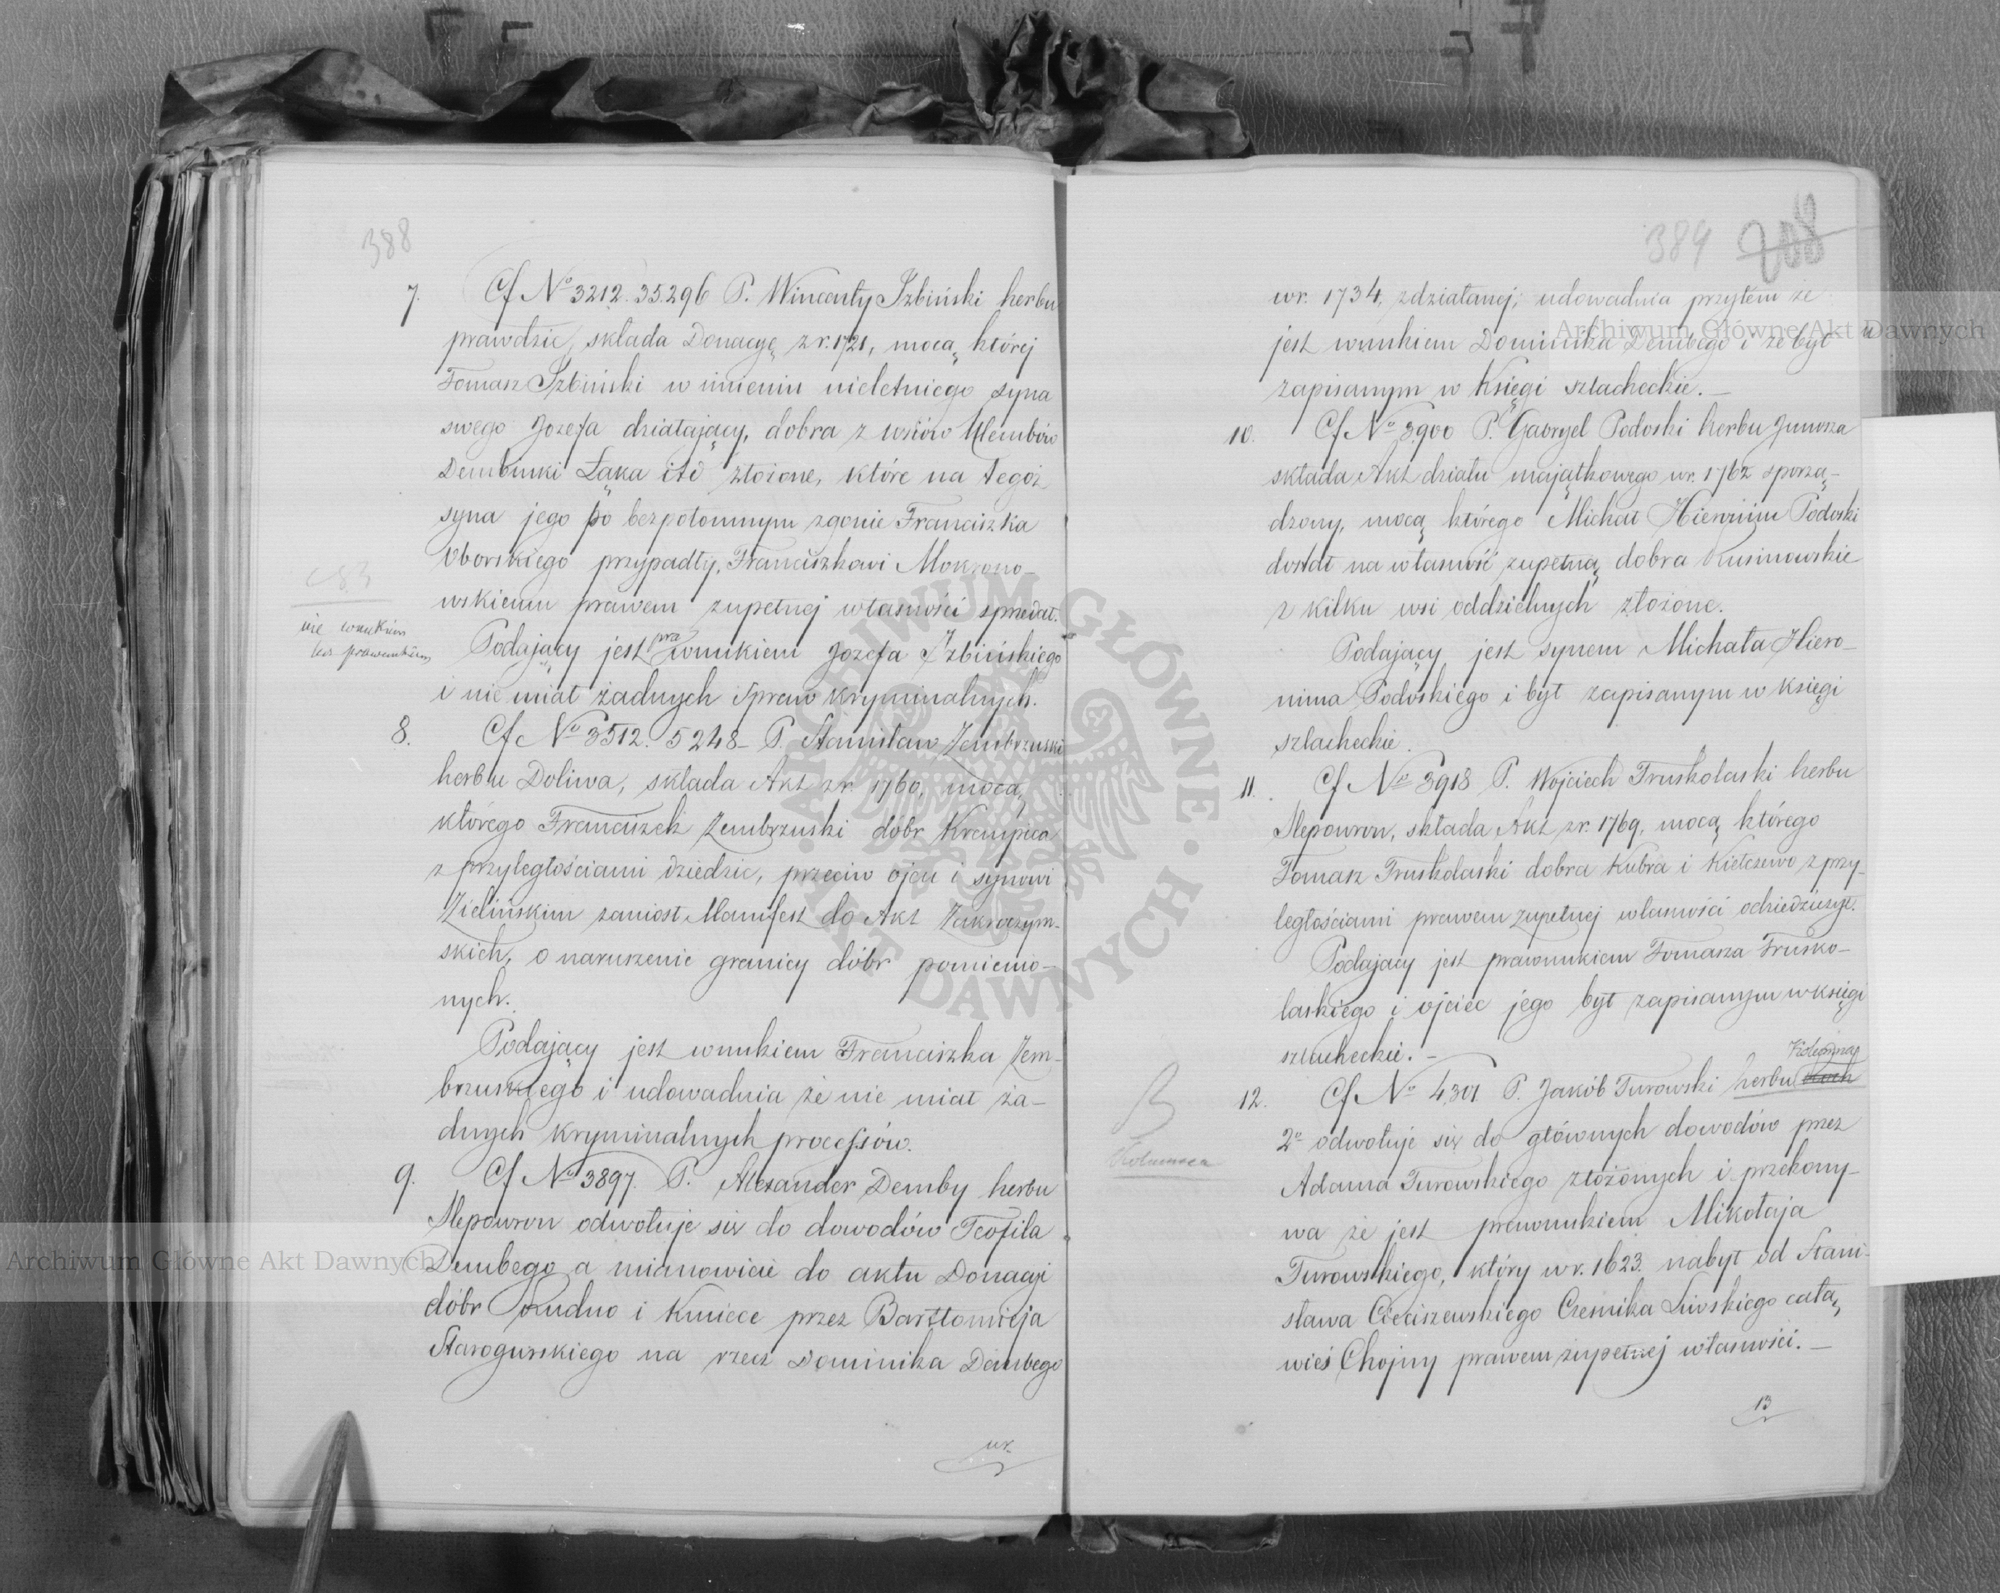 388
7. Cf No 3212. 35.296 P. Wincenty Izbiński herbu
prawdzic, składa Donacyę z r. 1721, mocą której
Tomasz Izbiński w imieniu nieletniego syna
swego Jozefa działający, dobra z wsiów Ulembów
Dembinki Łąka itd złożone, które na tegoż
syna jego po bezpotomnym zgonie Franciszka
Oborskiego przypadły, Franciszkowi Mokrono-
wskiemu prawem zupełnej własności sprzedał.
Podający jest prawnukiem Jozefa Izbińskiego
i nie miał żadnych spraw kryminalnych.
nie wnukiem
lecz prawnukiem
8. Cf No 3512. 5248 P. Stanisław Zembrzuski
herbu Doliwa, składa Akt z r. 1760, mocą
którego Franciszek Zembrzuski dóbr Krempica
z przyległościami dziedzic, przeciw ojcu i synowi
Zielińskim zaniosł Manifest do Akt Zakroczym-
skich, o naruszenie granicy dóbr pomienio-
nych.
Podający jest wnukiem Franciszka Zem-
brzuskiego i udowadnia że nie miał ża-
dnych kryminalnych processów.
9. Cf No 3897. P. Alexander Demby herbu
Slepowron odwołuje się do dowodów Teofila
Dembego a mianowicie do aktu Donacji
dóbr Rudno i Kmiece przez Bartłomieja
Starogurskiego na rzecz Dominika Dembego
wr.
389 208
wr. 1734, zdziałanej; udowadnia przytem że
jest wnukiem Dominika Dembego i że był
zapisanym w Księgi szlacheckie.—
10. Cf No 3900 P. Gabryel Podoski herbu Junosza
składa Akt działu majątkowego wr. 1762 sporzą-
dzony, mocą którego Michał Hieronim Podoski
dostał na własność zupełną dobra Rusinowskie
z kilku wsi oddzielnych złożone.
Podający jest synem Michała Hiero-
nima Podoskiego i był zapisanym w księgi
szlacheckie.
11. Cf No 3918 P. Wojciech Truskolaski herbu
Slepowron, składa Akt z r. 1769, mocą którego
Tomasz Truskolaski dobra Kubra i Kiełczewo z przy-
ległościami prawem zupełnej własności odziedziczył.
Podający jest prawnukiem Tomasza Trusko-
laskiego i ojciec jego był zapisanym w księgi
szlacheckie.—
Kolumna
12. Cf No 4301 P. Jakób Turowski herbu
2o odwołuje się do głównych dowodów przez
Adama Turowskiego złożonych i przekony-
wa że jest prawnukiem Mikołaja
Turowskiego, który w r. 1623. nabył od Stani-
sława Cieciszewskiego Cześnika Liwskiego całą
wieś Chojny prawem zupełnej własności.—
Kolumna
13
Archiwum Główne Akt Dawnych
Archiwum Główne Akt Dawnych
ARCHIWUM GŁÓWNE · AKT DAWNYCH ·